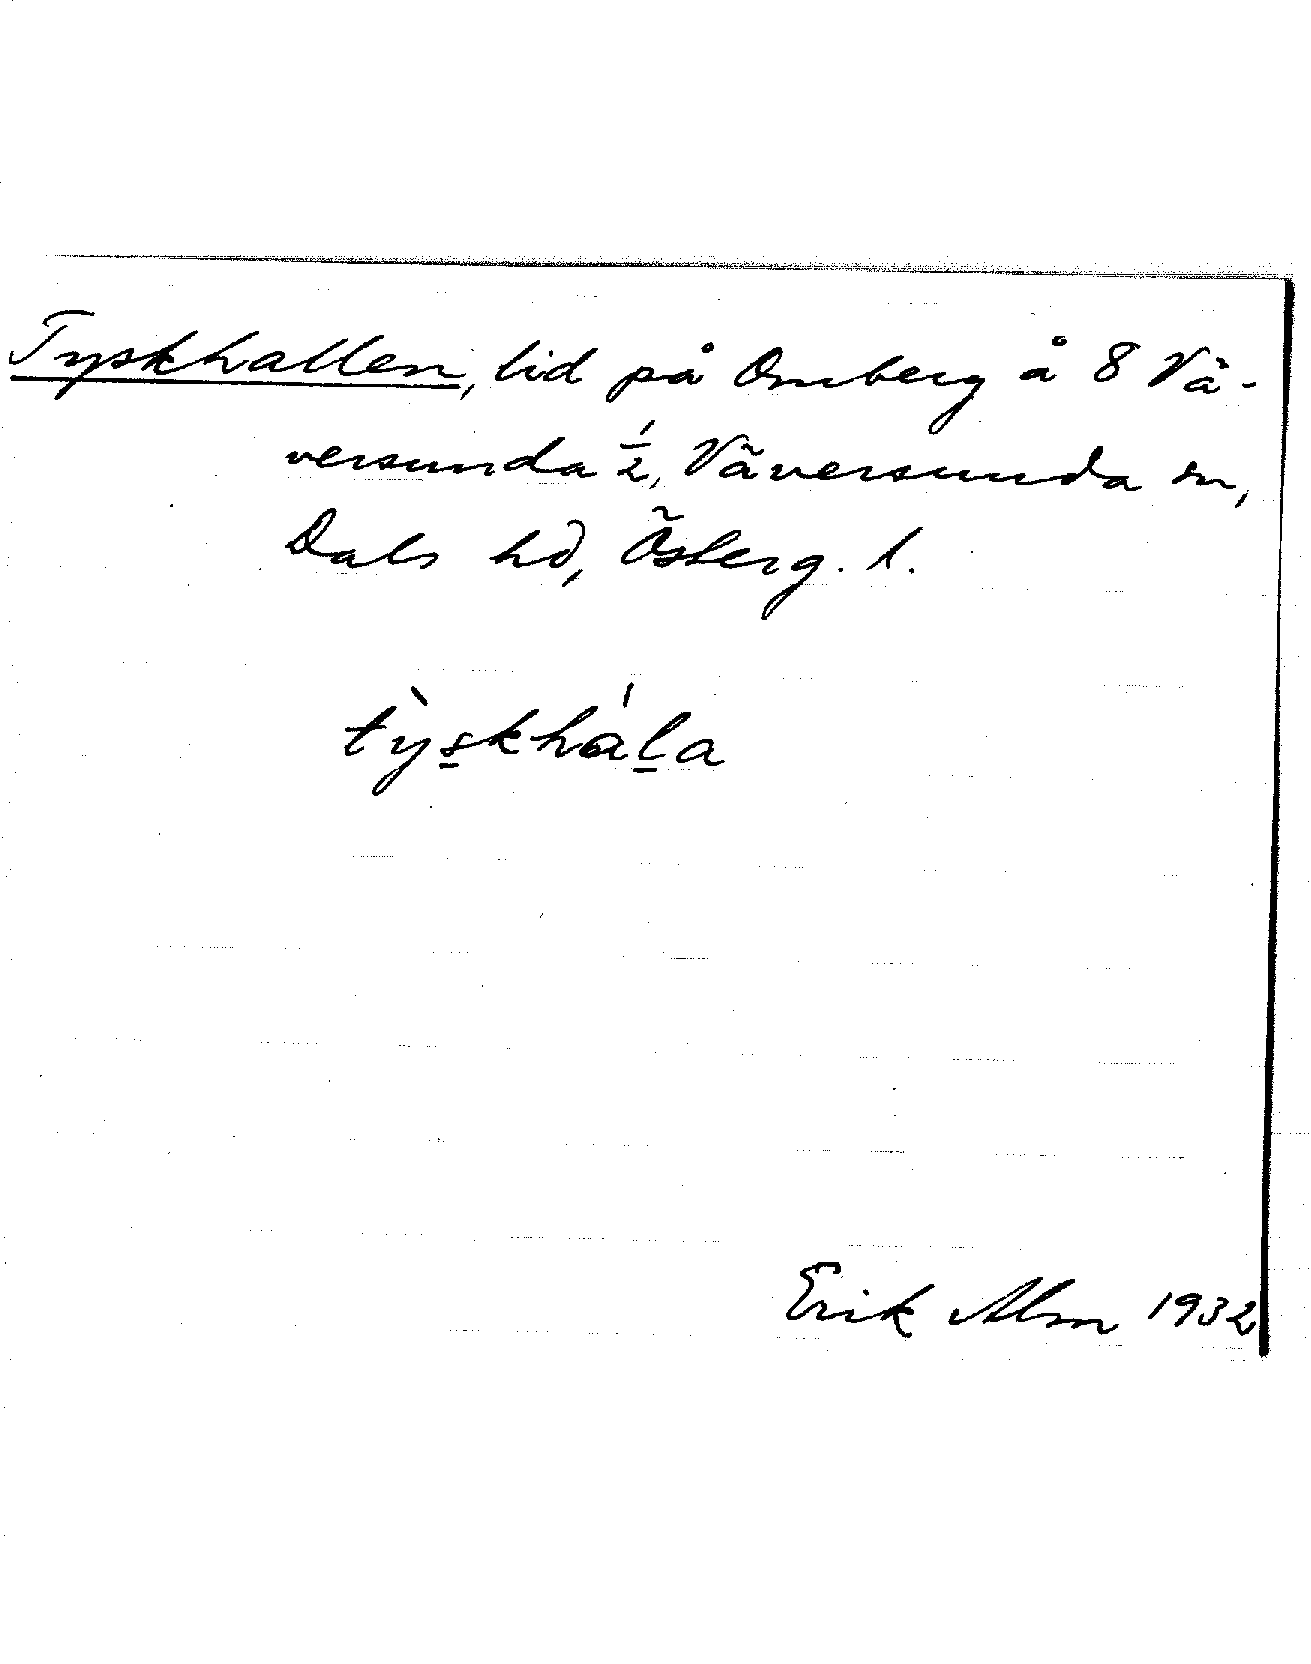 Tyskhallen, lid på Omberg å 8 Vä-
versunda 1/2, Väversunda sn,
Dals hd, Österg. l.
tỳskhála
Erik Alm 1932